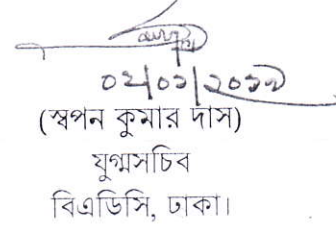 ০২/০১/২০১৯
(স্বপন কুমার দাস)
যুগ্মসচিব
বিএডিসি, ঢাকা।